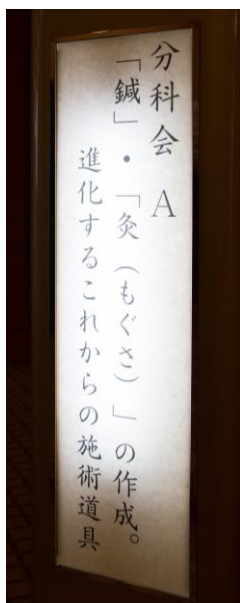 分科会 A
「鍼」・「灸（もぐさ）」の作成。
進化するこれからの施術道具